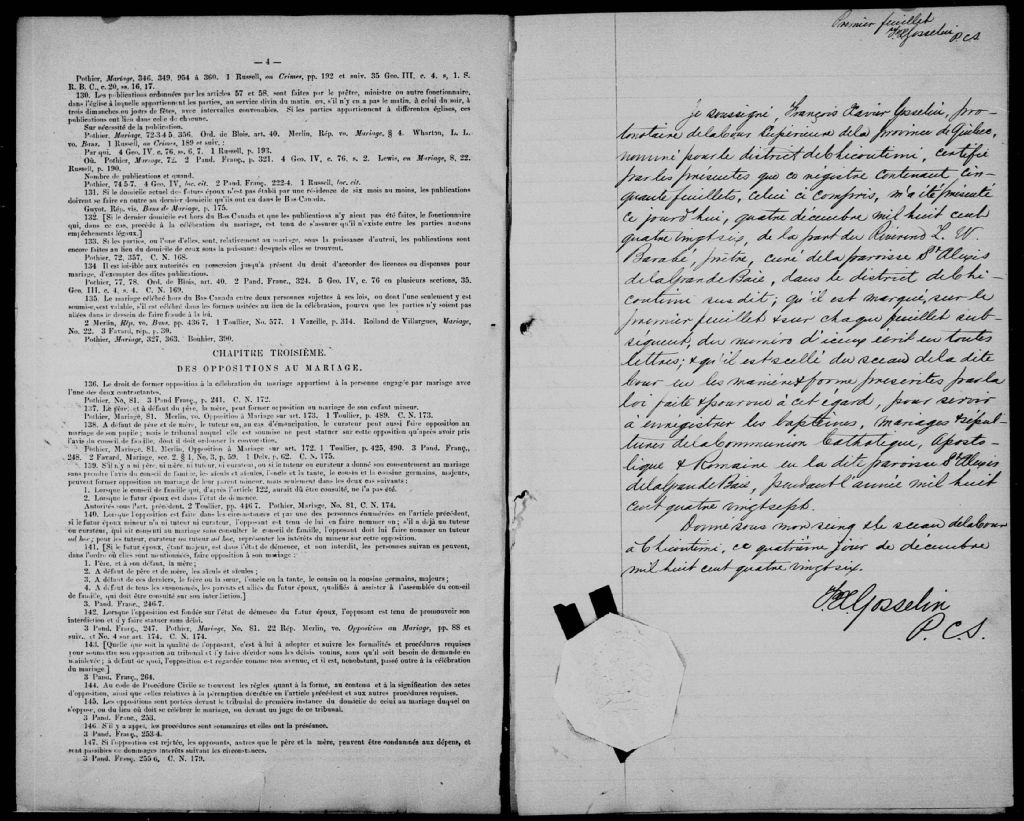 — 4 —
Pothier, Mariage, 346, 349, 954 à 360. 1 Russell, on Crimes, pp. 192 et suiv. 35 Geo. III, c. 4, s, 1. S.
R. B. C., c. 20, ss. 16, 17.
130. Les publications ordonnées par les articles 57 et 58, sont faites par le prêtre, ministre ou autre fonctionnaire,
dans l'église à laquelle appartiennent les parties, au service divin du matin, ou, s'il n'y en a pas le matin, à celui du soir, à
trois dimanches ou jours de fêtes, avec intervalles convenables. Si les parties appartiennent à différentes églises, ces
publications ont lieu dans celle de chacune.
Sur nécessité de la publication.
Pothier, Mariage, 72-3 4 5, 356. Ord. de Blois, art. 40. Merlin, Rép. vo. Mariage, § 4. Wharton, L. L.
vo. Bans. 1 Russell, on Crimes, 189 et suiv. :
Par qui. 4 Geo. IV, c. 76, ss. 6, 7. 1 Russell, p. 193.
Où. Pothier, Mariage, 72. 2 Pand. Franç., p. 321. 4 Geo. IV, c. 76, s. 2. Lewis, on Mariage, 8, 22.
Russell, p. 190.
Nombre de publications et quand.
Pothier, 74 5-7. 4 Geo. IV, loc. cit. 2 Pand. Franç., 222-4. 1 Russell, loc. cit.
131. Si le domicile actuel des futurs époux n'est pas établi par une résidence de six mois au moins, les publications
doivent se faire en outre au dernier domicile qu'ils ont eu dans le Bas Canada.
Guyot, Rép. vis. Bans de Mariage, p. 175.
132. [Si le dernier domicile est hors du Bas Canada et que les publications n'y aient pas été faites, le fonctionnaire
qui, dans ce cas, procède à la célébration du mariage, est tenu de s'assurer qu'il n'existe entre les parties aucuns
empêchements légaux.]
133. Si les parties, ou l'une d'elles, sont, relativement au mariage, sous la puissance d'autrui, les publications sont
encore faites au lieu du domicile de ceux sous la puissance desquels elles se trouvent.
Pothier, 72, 357. C. N. 168.
134. Il est loisible aux autorités en possession jusqu'à présent du droit d'accorder des licences ou dispenses pour
mariage, d'exempter des dites publications.
Pothier, 77, 78. Ord. de Blois, art. 40. 2 Pand. Franç., 324. 5 Geo. IV, c. 76 en plusieurs sections, 35.
Geo. III, c. 4, s. 4. C. N. 169.
135. Le mariage célébré hors du Bas Canada entre deux personnes sujettes à ses lois, ou dont l'une seulement y est
soumise, est valable, s'il est célébré dans les formes usitées au lieu de la célébration, pourvu que les parties n'y soient pas
allées dans le dessein de faire fraude à la loi.
2 Merlin, Rép. vo. Bans, pp. 436 7. 1 Toullier, No. 577. 1 Vazeille, p. 314. Rolland de Villargues, Mariage,
No. 22. 3 Favard, rép., p. 39.
Pothier, Mariage, 327, 363. Bouhier, 390.
CHAPITRE TROISIÈME.
DES OPPOSITIONS AU MARIAGE.
136. Le droit de former opposition à la célébration du mariage appartient à la personne engagée par mariage avec
l'une des deux contractantes.
Pothier, No, 81. 3 Pand Franç., p. 241. C. N. 172.
137. Le père, et à défaut du père, la mère, peut former opposition au mariage de son enfant mineur.
Pothier, Mariage, 81. Merlin, vo. Opposition à Mariage sur art. 173. 1 Toullier, p. 489. C. N. 173.
138. A défaut de père et de mère, le tuteur ou, au cas d'émancipation, le curateur peut aussi faire opposition au
mariage de son pupile ; mais le tribunal auquel elle est soumise ne peut statuer sur cette opposition qu'après avoir pris
l'avis du conseil de famille, dont il doit ordonner la convocation.
Pothier, Mariage, 81. Merlin, Opposition à Mariage sur art. 172. 1 Toullier, p. 425, 490. 3 Pand. Franç.,
248. 2 Favard, Mariage, sec. 2. § 1, No. 3, p. 59. 1 Delv. p. 62. C. N. 175.
139. S'il n'y a ni père, ni mère, ni tuteur, ni curateur, ou si le tuteur ou curateur a donné son consentement au mariage
sans prendre l'avis du conseil de famille, les aïeuls et aïeules, l'oncle et la tante, le cousin et la cousine germains, majeurs,
peuvent former opposition au mariage de leur parent mineur, mais seulement dans les deux cas suivants ;
1. Lorsque le conseil de famille qui, d'après l'article 122, aurait dû être consulté, ne l'a pas été.
2. Lorsque le futur époux est dans l'état de démence.
Autorités sous l'art. précédent, 2 Toullier, pp. 446 7. Pothier, Mariage, No. 81. C. N. 174.
140. Lorsque l'opposition est faite dans les circonstances et par une des personnes énumérées en l'article précédent,
si le futur époux mineur n'a ni tuteur ni curateur, l'opposant est tenu de lui en faire nommer un ; s'il a déjà un tuteur
ou curateur, qui ait consenti au mariage sans consulter le conseil de famille, l'opposant doit lui faire nommer un tuteur
ad hoc ; pour les tuteur, curateur ou tuteur ad hoc, représenter les intérêts du mineur sur cette opposition.
141. [Si le futur époux, étant majeur, est dans l'état de démence, et non interdit, les personnes suivantes peuvent,
dans l'ordre où elles sont mentionnées, faire opposition à son mariage :
1. Père, et à son défaut, la mère ;
2. A défaut de père et de mère, les aïeuls et aïeules ;
3. A défaut de ces derniers, le frère ou la sœur, l'oncle ou la tante, le cousin ou la cousine germains, majeurs ;
4. A défaut de tous les susnommés, les parents et alliés du futur époux, qualifiés à assister à l'assemblée du conseil
de famille, qui doit être consulté sur son interdiction.]
3. Pand. Franç., 246 7.
142. Lorsque l'opposition est fondée sur l'état de démence du futur époux, l'opposant est tenu de promouvoir son
interdiction et d'y faire statuer sans délai.
3 Pand. Franç., 247. Pothier, Mariage, No. 81. 22 Rép. Merlin, vo. Opposition au Mariage, pp. 88 et
suiv., et No. 4 sur art. 174. C. N. 174.
143. [Quelle que soit la qualité de l'opposant, c'est à lui à adopter et suivre les formalités et procédures requises
pour soumettre son opposition au tribunal et l'y faire décider sous les délais voulus, sans qu'il soit besoin de demande en
mainlevée ; à défaut de quoi, l'opposition est regardée comme non avenue, et il est, nonobstant, passé outre à la célébration
du mariage.]
3 Pand. Franç., 264.
144. Au code de Procédure Civile se trouvent les règles quant à la forme, au contenu et à la signification des actes
d'opposition, ainsi que celles relatives à la péremption décrétée en l'article précédent et aux autres procédures requises.
145. Les oppositions sont portées devant le tribunal de première instance du domicile de celui au mariage duquel on
s'oppose, ou du lieu où doit se célébrer le mariage, ou devant un juge de ce tribunal.
3 Pand. Franc., 253.
146. S'il y a appel, les procédures sont sommaires et elles ont la préséance.
3 Pand. Franç., 253-4.
147. Si l'opposition est rejetée, les opposants, autres que le père et la mère, peuvent être condamnés aux dépens, et
sont passibles de dommages intérêts suivant les circonstances.
3 Pand. Franç. 255-6. C. N. 179.
Premier feuillet
F. X. Gosselin
P. C. S.
Je soussigné, François Xavier Gosselin, pro-
tonotaire de la Cour Supérieure de la province de Québec,
nommé pour le district de Chicoutimi, certifie
par les présentes que ce registre contenant cin-
quante feuillets, celui ci compris, m'a été présenté
ce jourd'hui, quatre décembre mil huit cent
quatre vingt six, de la part du Révérend L. W.
Barabé, prêtre, curé de la paroisse St Alexis
de la Grande Baie, dans le district de Chi-
coutimi susdit ; qu'il est marqué, sur le
premier feuillet & sur chaque feuillet sub-
séquent, du numéro d'iceux écrit en toutes
lettres ; & qu'il est scellé du sceau de la dite
Cour en les manière & forme prescrites par la
loi faite & pourvue à cet égard, pour servir
à enregistrer les baptêmes, mariages & sépul-
tures de la Communion Catholique, Aposto-
lique & Romaine en la dite paroisse St Alexis
de la Grande Baie, pendant l'année mil huit
cent quatre vingt sept.
Donné sous mon seing & le sceau de la Cour
à Chicoutimi, ce quatrième jour de décembre
mil huit cent quatre vingt six.
F. X. Gosselin
P. C. S.